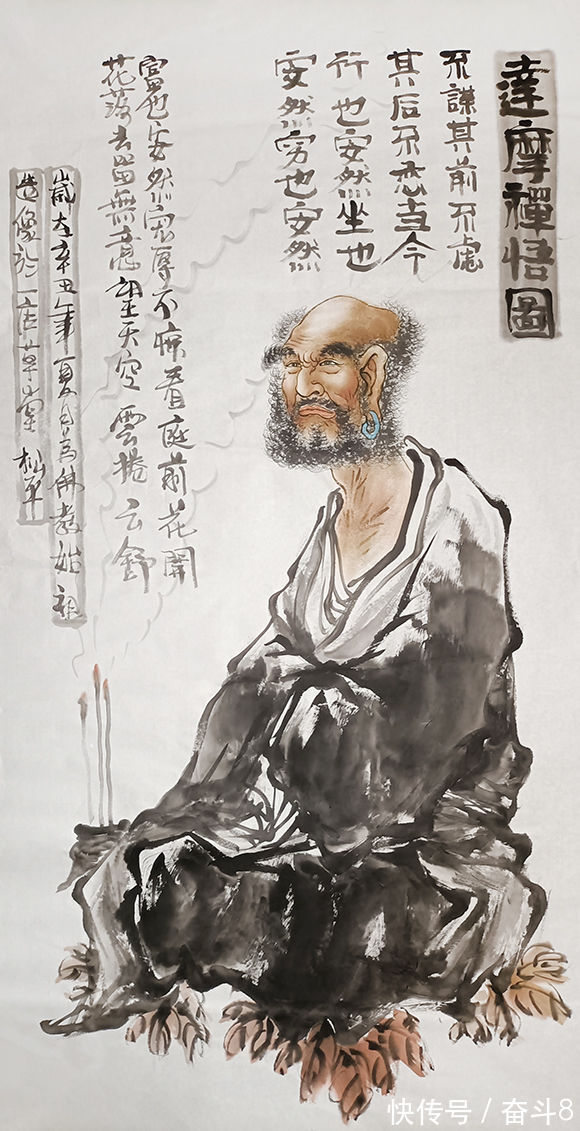 達摩禪悟圖
不謀其前不慮
其后不恋当今
行也安然坐也
安然穷也安然
富也安然宠辱不惊看庭前花開
花落去留無意望天空雲捲云舒
歲在辛丑年夏月為佛教始祖
造像於一草堂
快传号 / 奋斗8